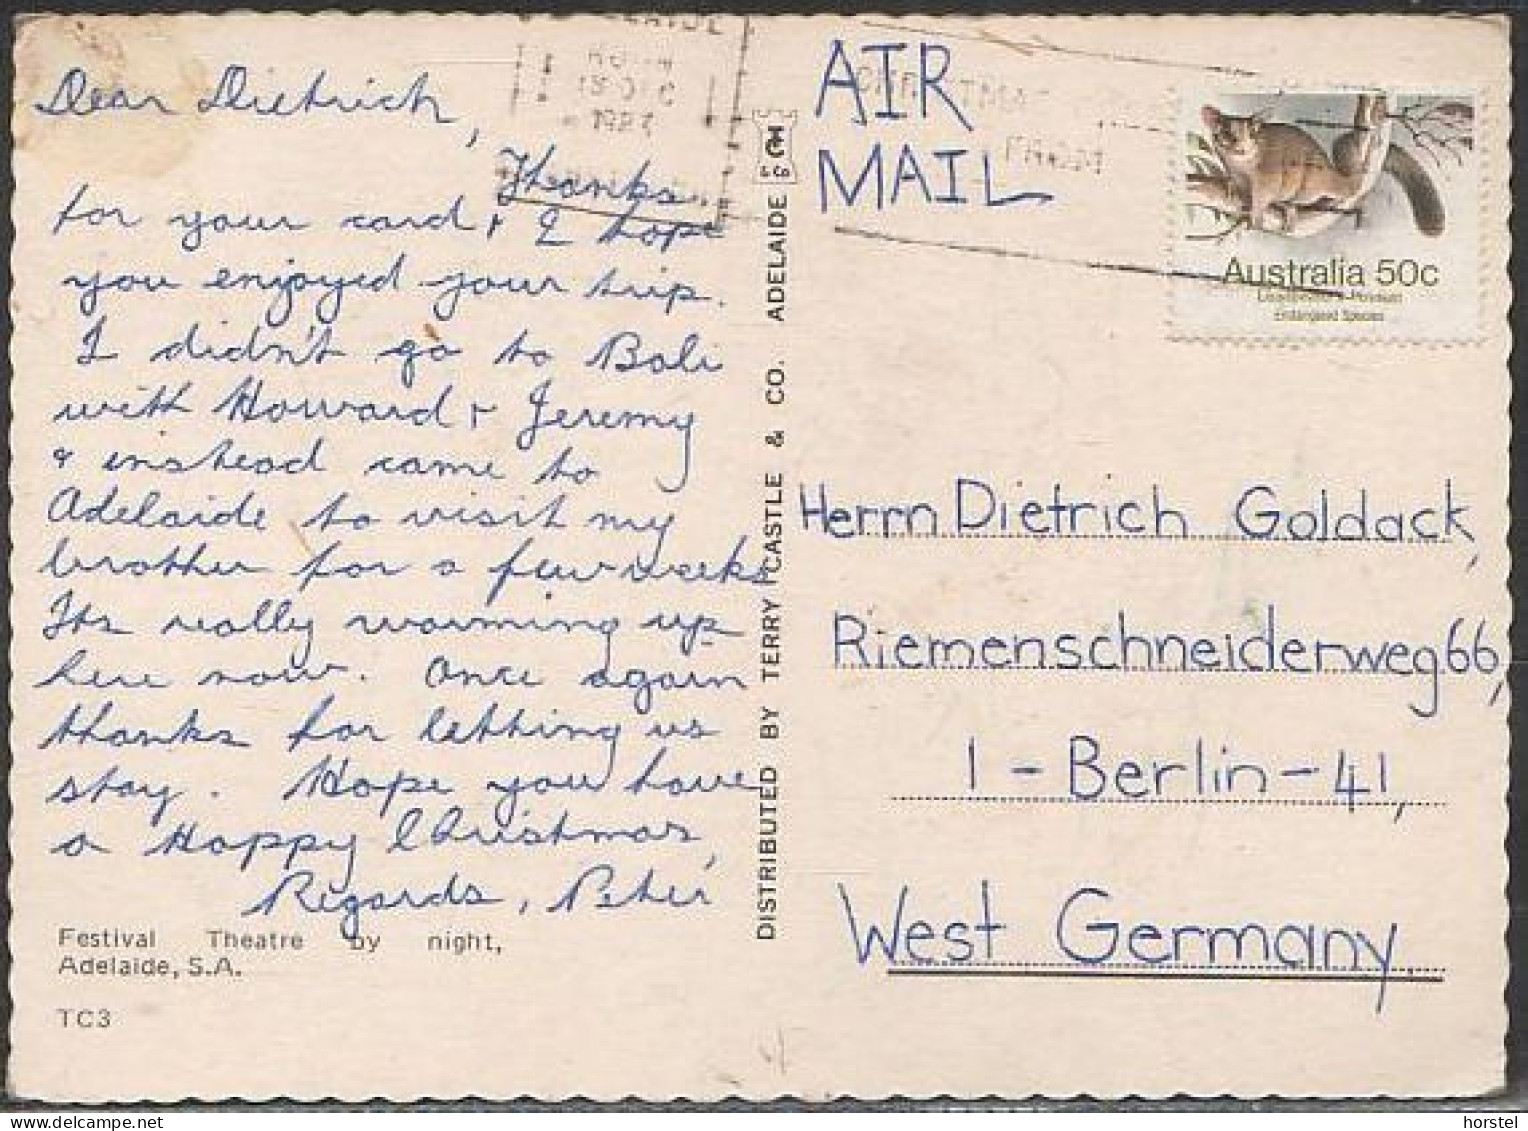 Dear Dietrich,
Thanks
for your card & I hope
you enjoyed your trip.
I didn't go to Bali
with Howard & Jeremy
& instead came to
Adelaide to visit my
brother for a few weeks
Its really warming up
here now. Once again
thanks for letting us
stay. Hope you have
a Happy Christmas,
Regards, Peter
Festival Theatre by night,
Adelaide, S.A.
TC3
DISTRIBUTED BY TERRY CASTLE & CO. ADELAIDE
AIR
MAIL
FROM
Australia 50c
Endangered Species
Herrn Dietrich Goldack,
Riemenschneiderweg 66,
1 - Berlin - 41,
West Germany
horstel